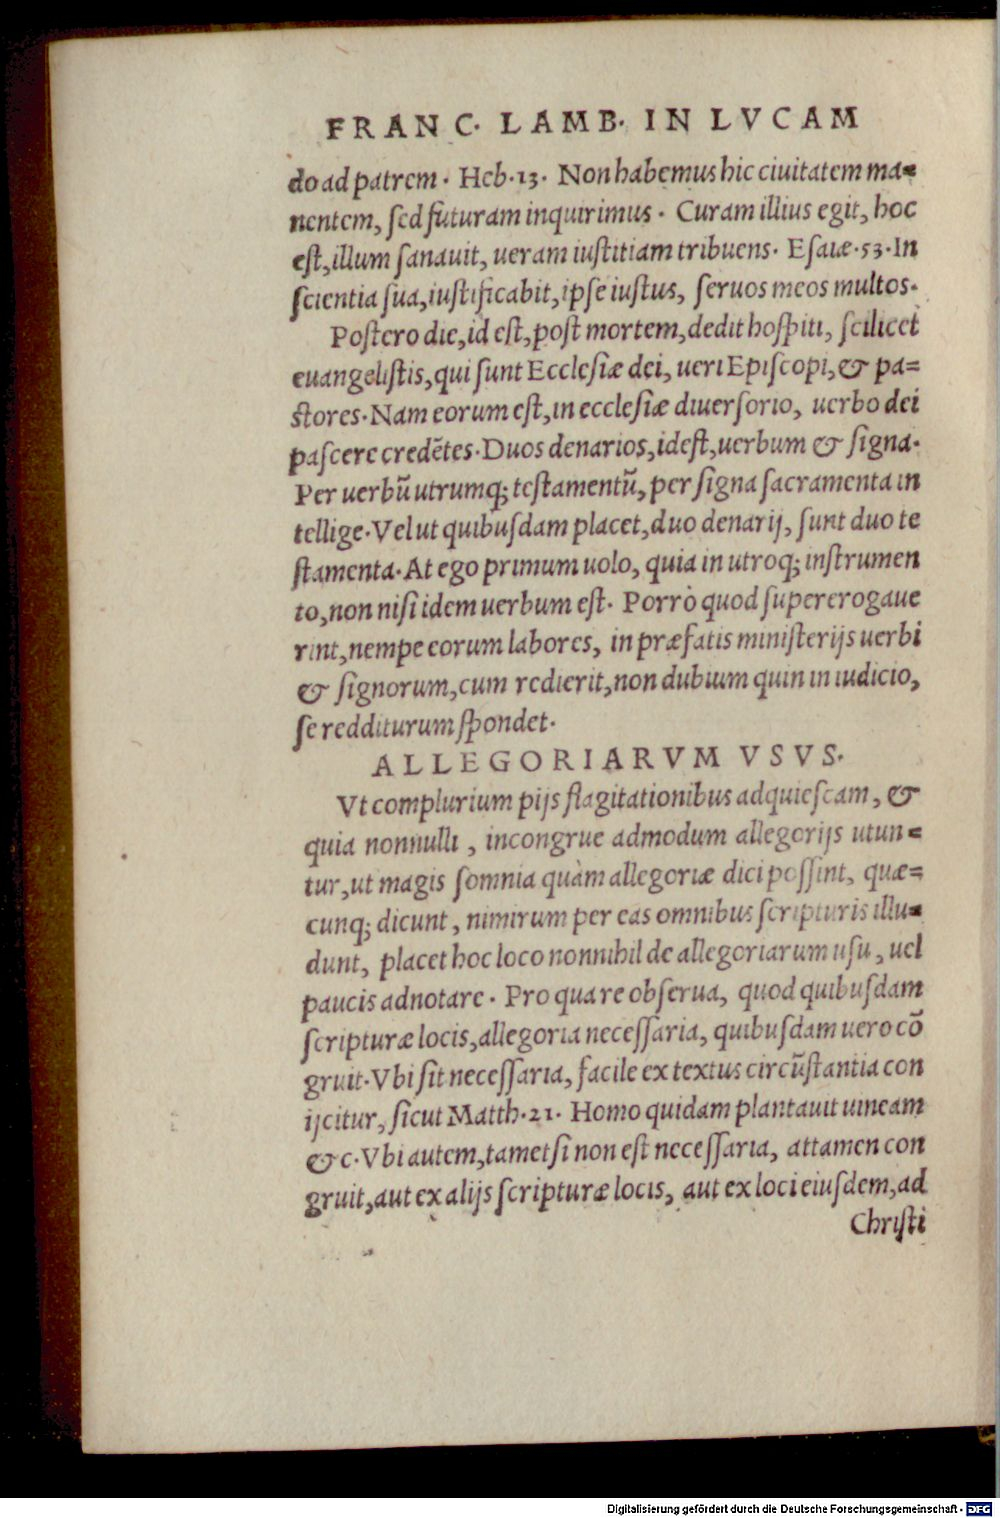 FRANC. LAMB. IN LVCAM
do ad patrem. Heb. 13. Non habemus hic ciuitatem ma=
nentem, sed futuram inquirimus. Curam illius egit, hoc
est, illum sanauit, ueram iustitiam tribuens. Esaiæ. 53. In
scientia sua, iustificabit, ipse iustus, seruos meos multos.
Postero die, id est, post mortem, dedit hospiti, scilicet
euangelistis, qui sunt Ecclesiæ dei, ueri Episcopi, & pa=
stores. Nam eorum est, in ecclesiæ diuersorio, uerbo dei
pascere credētes. Duos denarios, id est, uerbum & signa.
Per uerbū utrumq; testamentū, per signa sacramenta in
tellige. Vel ut quibusdam placet, duo denarij, sunt duo te
stamenta. At ego primum uolo, quia in utroq; instrumen
to, non nisi idem uerbum est. Porrò quod supererogaue
rint, nempe eorum labores, in præfatis ministerijs uerbi
& signorum, cum redierit, non dubium quin in iudicio,
se redditurum spondet.
ALLEGORIARVM VSVS.
Vt complurium pijs flagitationibus adquiescam, &
quia nonnulli, incongrue admodum allegorijs utun=
tur, ut magis somnia quàm allegoriæ dici possint, quæ=
cunq; dicunt, nimirum per eas omnibus scripturis illu=
dunt, placet hoc loco nonnihil de allegoriarum usu, uel
paucis adnotare. Pro qua re obserua, quod quibusdam
scripturæ locis, allegoria necessaria, quibusdam uero cō
gruit. Vbi sit necessaria, facile ex textus circūstantia con
ijcitur, sicut Matth. 21. Homo quidam plantauit uineam
&c. Vbi autem, tametsi non est necessaria, attamen con
gruit, aut ex alijs scripturæ locis, aut ex loci eiusdem, ad
Christi
Digitalisierung gefördert durch die Deutsche Forschungsgemeinschaft - DFG